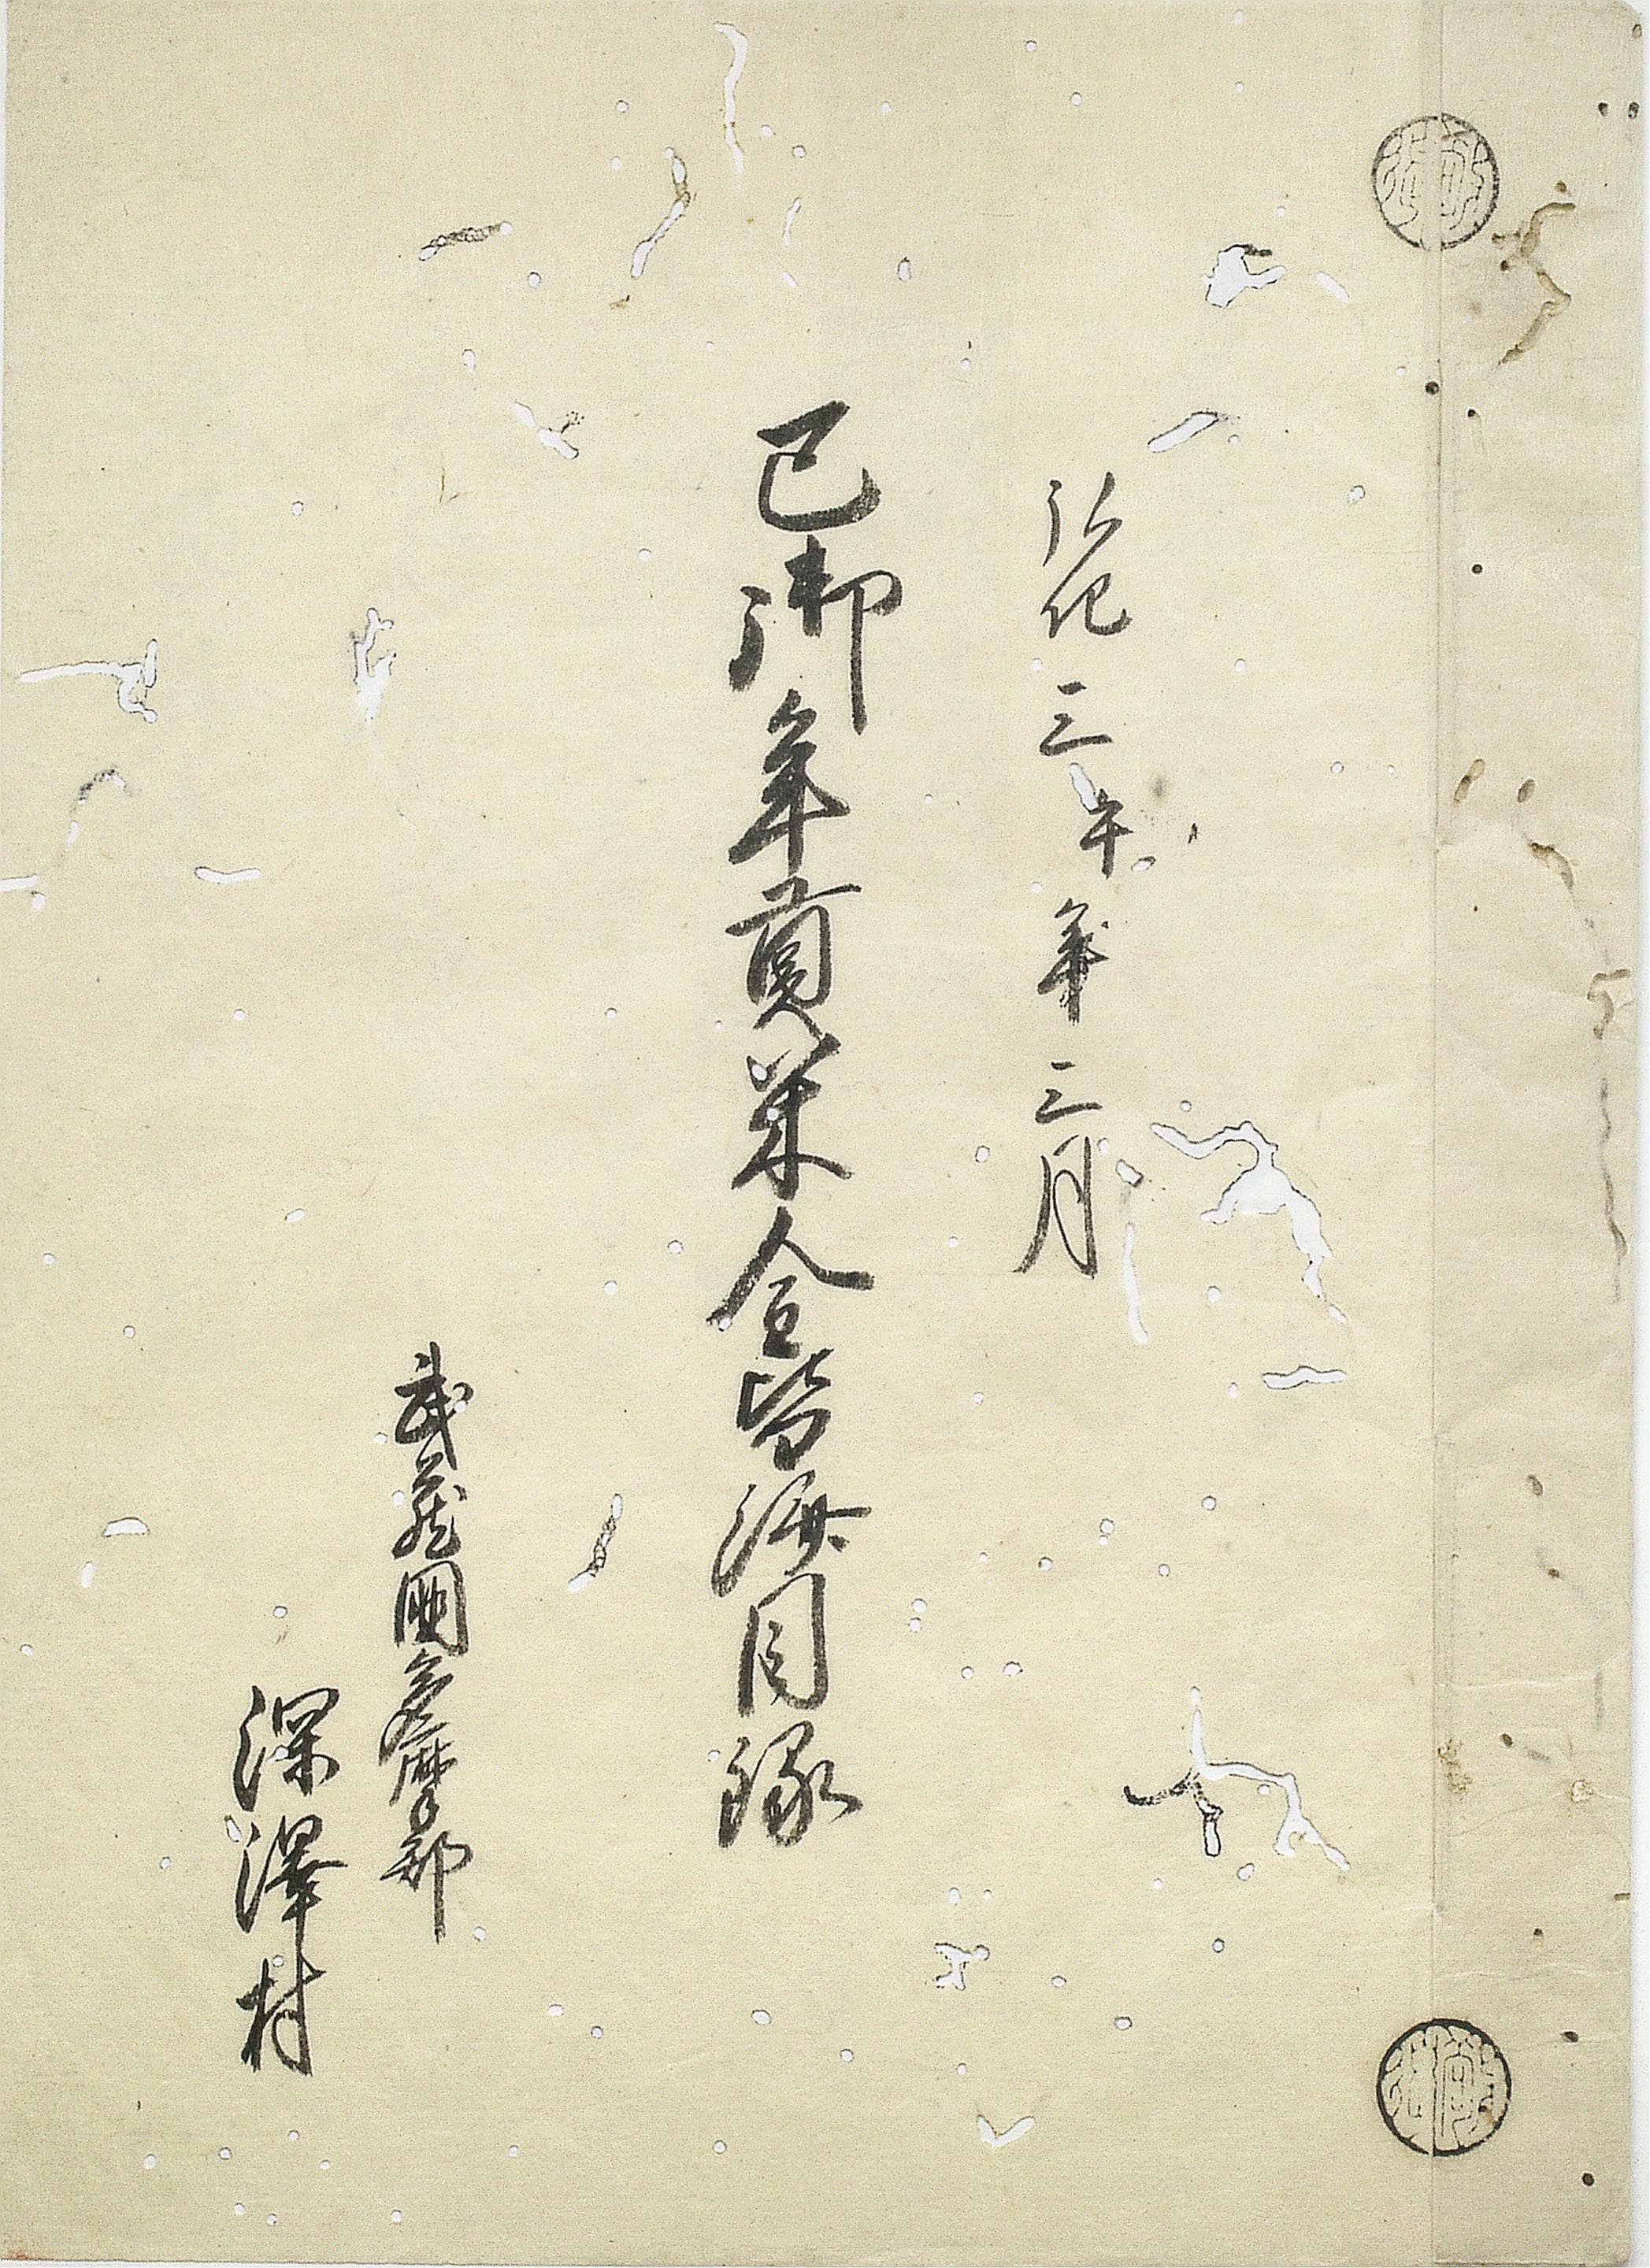 弘化三午年三月
巳御年貢米金皆済目録
武蔵國多摩郡
深澤村